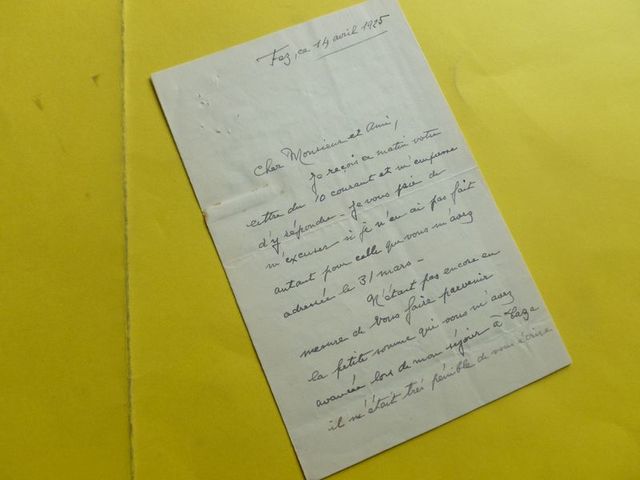 Fez, ce 14 avril 1925
Cher Monsieur et Ami,
Je reçois ce matin votre
lettre du 10 courant et m'empresse
d'y répondre. Je vous prie de
m'excuser si je n'en ai pas fait
autant pour celle que vous m'avez
adressée le 31 mars.
N'étant pas encore en
mesure de vous faire parvenir
la petite somme que vous m'avez
avancée lors de mon séjour à Taza
il m'était très pénible de vous écrire